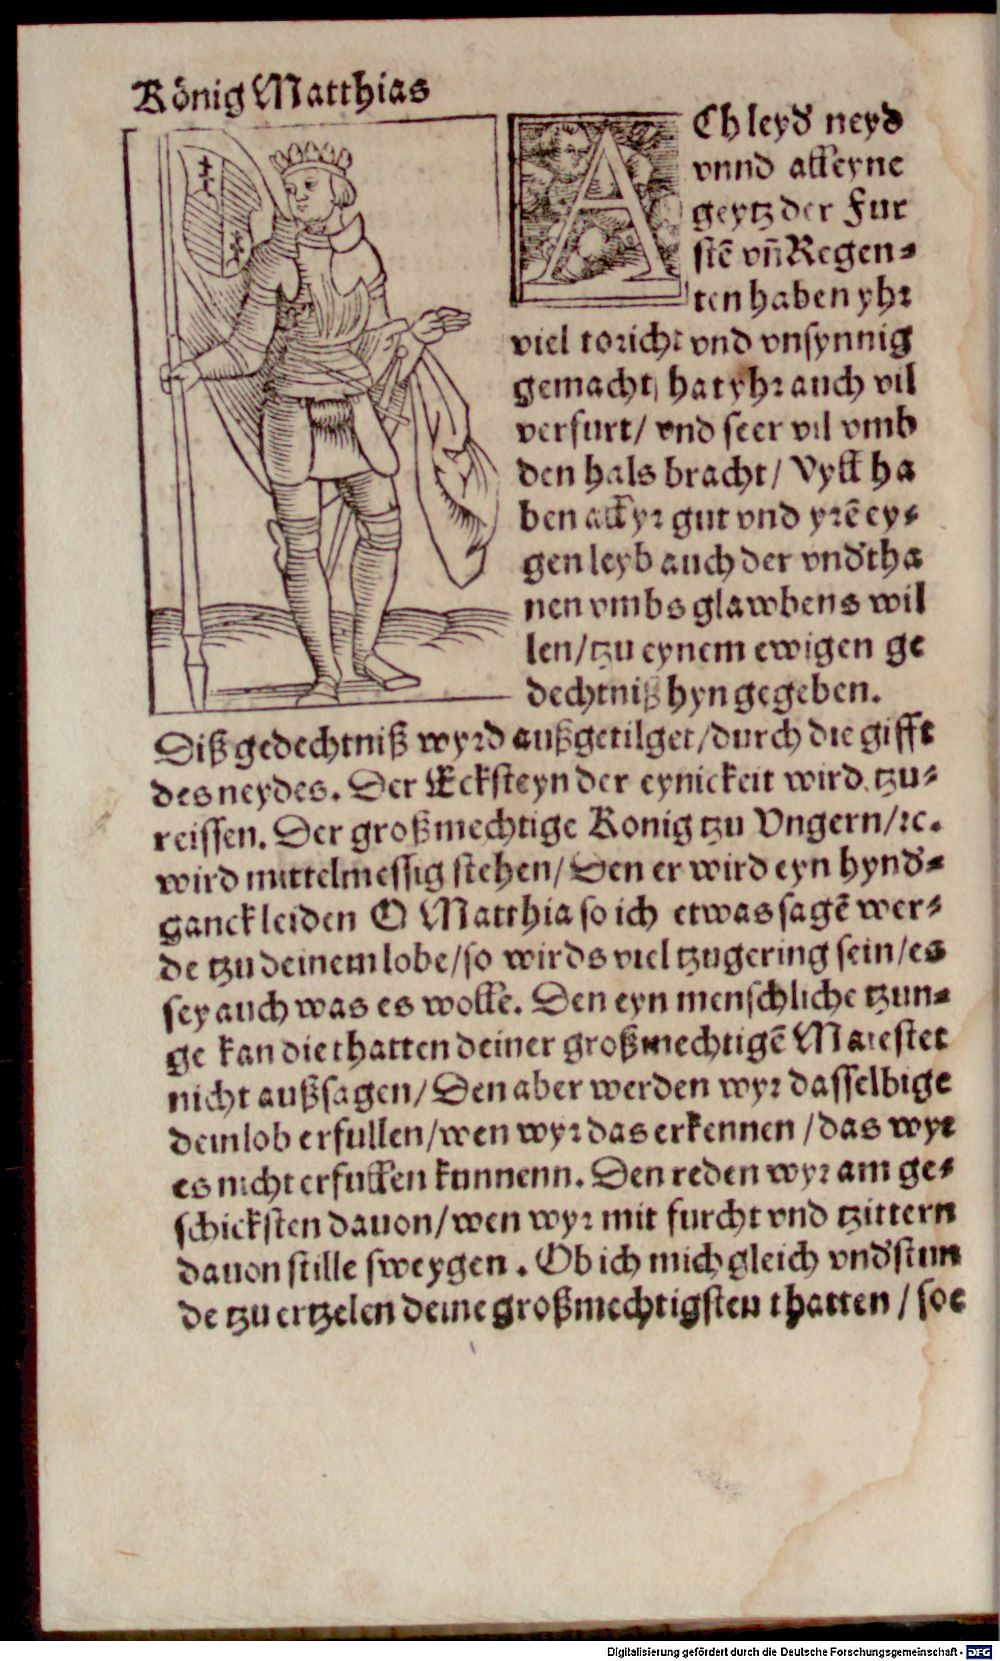 König Matthias
ACh leyd neyd
vnnd alleyne
geytz der Fur
stē vn̄ Regen⸗
ten haben yhr
viel toricht vnd vnsynnig
gemacht/ hat yhr auch vil
verfurt/ vnd seer vil vmb
den hals bracht/ Vyll ha
ben all yr gut vnd yrē ey⸗
gen leyb auch der vnd'tha
nen vmbs glawbens wil
len/tzu eynem ewigen ge
dechtniß hyn gegeben.
Diß gedechtniß wyrd außgetilget/durch die gifft
des neydes. Der Ecksteyn der eynickeit wird tzu⸗
reissen. Der großmechtige Konig tzu Vngern/ꝛc.
wird mittelmessig stehen/ Den er wird eyn hynd'⸗
ganck leiden O Matthia so ich etwas sagē wer⸗
de tzu deinem lobe/so wirds viel tzugering sein/es
sey auch was es wolle. Den eyn menschliche tzun⸗
ge kan die thatten deiner großmechtigē Maiestet
nicht außsagen/ Den aber werden wyr dasselbige
dein lob erfullen/wen wyr das erkennen /das wyr
es nicht erfullen kunnenn. Den reden wyr am ge⸗
schicksten dauon/wen wyr mit furcht vnd tzittern
dauon stille sweygen. Ob ich mich gleich vnd'stun
de tzu ertzelen deine großmechtigsten thatten / soe
Digitalisierung gefördert durch die Deutsche Forschungsgemeinschaft - DFG